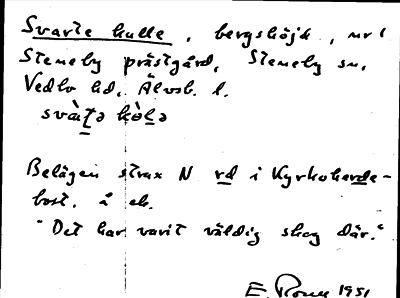 Svarte kulle, bergshöjd, nr 1
Steneby prästgård, Steneby sn,
Vedbo hd, Älvsb. l.
svàṯə kòḻə
Belägen strax N rd i Kyrkoherde-
bost. å ek.
"Det har varit väldig skog där."
E. 1951